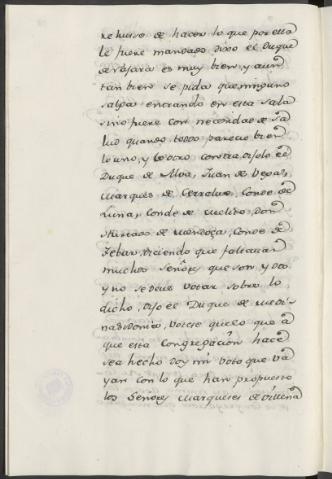 rehusso de hacer lo que por ella
le fuere mandado dixo el Duque
de es muy bien y aun
tan bien se pida que ninguno
salga entrando en esta sala
sino fuere con necesidad de sa
lud quando todos parece bien
lo uno, y lo otro contra dijo el
Duque de Alva, Juan de Vega,
Marques de Cerralvo, Conde de
Luna, Conde de Don
Hurtado de Mendoça, Conde de
diciendo que faltavan
muchos Señores que son, y
y no se deve votar sobre lo
dicho, dijo el Duque de Medi
nasidonia, que lo que a
que esta Congregacion hace
sea hecho doy mi voto que va
yan con lo que han propuesto
los Señores Marqueses de Villena